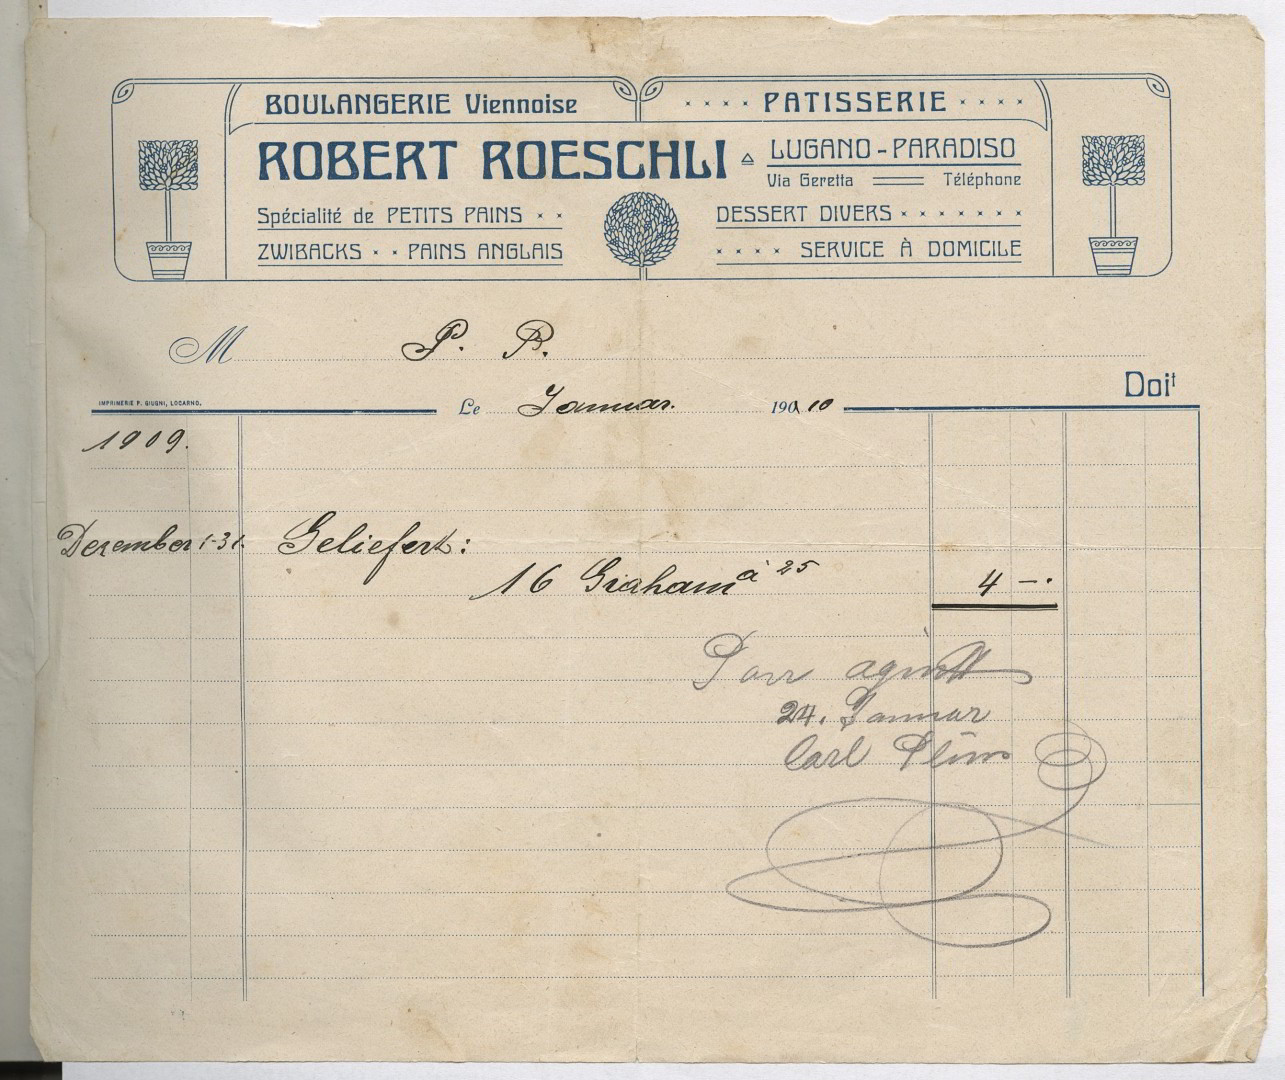 BOULANGERIE Viennoise
PATISSERIE
ROBERT ROESCHLI
LUGANO-PARADISO
Via Geretta Téléphone
Spécialité de PETITS PAINS
DESSERT DIVERS
ZWIBACKS · · PAINS ANGLAIS
SERVICE À DOMICILE
M P. P.
Doit
IMPRIMERIE P. GIUGNI, LOCARNO.
Le Januar. 1910
1909.
Dezember 1-31. Geliefert:
16 Graham à 25 4 -.
Parr
24. Januar
Carl